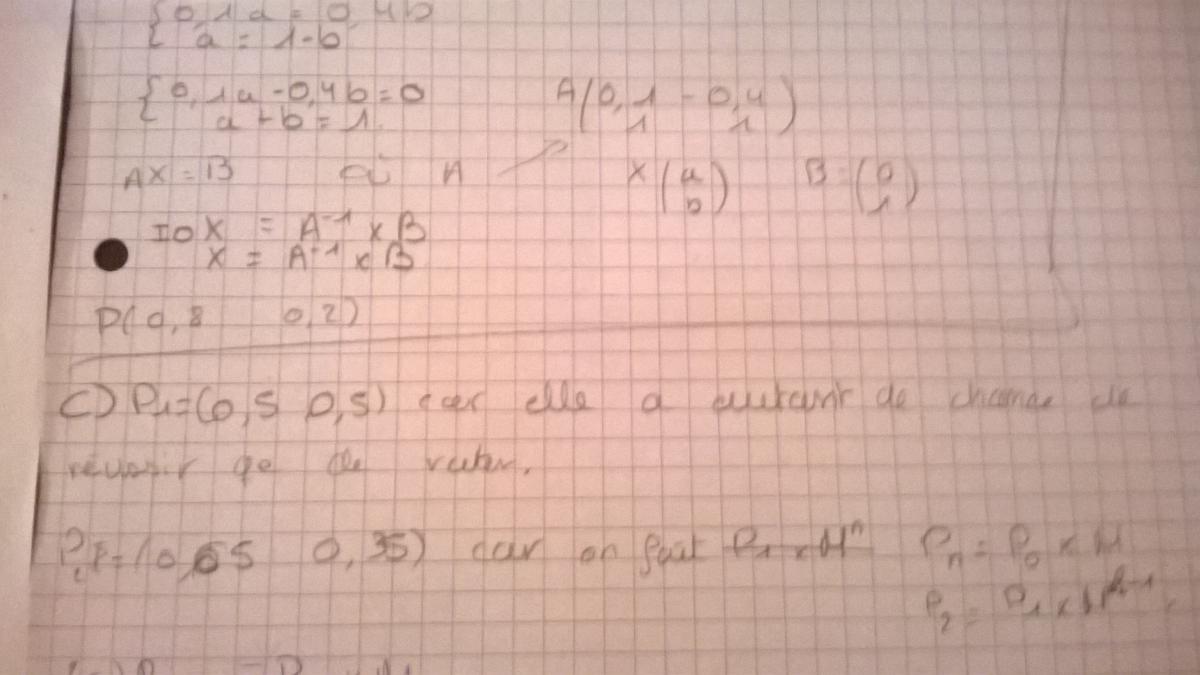 { 0,1a = 0,4b
{ a = 1-b
{ 0,1a - 0,4b = 0
a + b = 1.
A ( 0,1 - 0,4
1 1 )
AX = B où A X ( a
b ) B = ( 0
1 )
IO X = A⁻¹ x B
X = A⁻¹ x B
P( 0,8 0,2)
C) P₁=(0,5 0,5) car elle a autant de chance de
réussir qe de rater.
P₂ = (0,65 0,35) car on fait P₁ x Mⁿ Pn = P₀ x M
P₂ = P₁ x M²⁻¹.